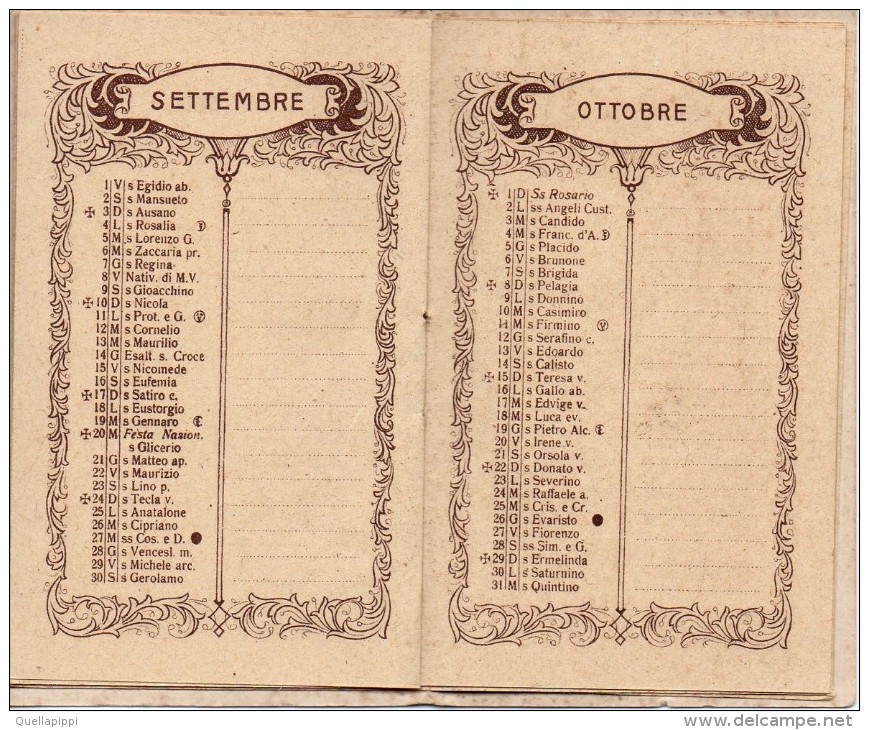 SETTEMBRE
1 V s Egidio ab.
2 S s Mansueto
✠ 3 D s Ausano
4 L s Rosalia
5 M s Lorenzo G.
6 M s Zaccaria pr.
7 G s Regina
8 V Nativ. di M.V.
9 S s Gioacchino
✠ 10 D s Nicola
11 L s Prot. e G.
12 M s Cornelio
13 M s Maurilio
14 G Esalt. s. Croce
15 V s Nicomede
16 S s Eufemia
✠ 17 D s Satiro c.
18 L s Eustorgio
19 M s Gennaro
✠ 20 M Festa Nasion.
s Glicerio
21 G s Matteo ap.
22 V s Maurizio
23 S s Lino p.
✠ 24 D s Tecla v.
25 L s Anatalone
26 M s Cipriano
27 M ss Cos. e D.
28 G s Vencesl. m.
29 V s Michele arc.
30 S s Gerolamo
OTTOBRE
✠ 1 D Ss Rosario
2 L ss Angeli Cust.
3 M s Candido
4 M s Franc. d'A.
5 G s Placido
6 V s Brunone
7 S s Brigida
✠ 8 D s Pelagia
9 L s Donnino
10 M s Casimiro
11 M s Firmino
12 G s Serafino c.
13 V s Edoardo
14 S s Calisto
✠ 15 D s Teresa v.
16 L s Gallo ab.
17 M s Edvige v.
18 M s Luca ev.
19 G s Pietro Alc.
20 V s Irene v.
21 S s Orsola v.
✠ 22 D s Donato v.
23 L s Severino
24 M s Raffaele a.
25 M s Cris. e Cr.
26 G s Evaristo
27 V s Fiorenzo
28 S ss Sim. e G.
✠ 29 D s Ermelinda
30 L s Saturnino
31 M s Quintino
Quellapippi
www.delcampe.net